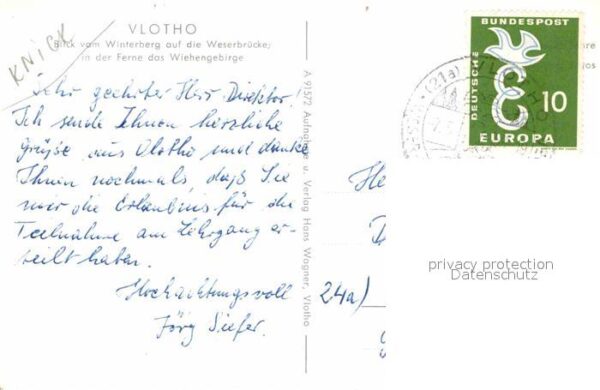 VLOTHO
Blick vom Winterberg auf die Weserbrücke;
in der Ferne das Wiehengebirge
KNICK
Sehr geehrter Herr Direktor.
Ich sende Ihnen herzliche
Grüße aus Vlotho und danke
Ihnen nochmals, daß Sie
mir die Erlaubnis für die
Teilnahme am Lehrgang er-
teilt haben.
Hochachtungsvoll
Jörg Siefer.
A 915/2 Aufnahme u. Verlag Hans Wagner, Vlotho
DEUTSCHE
BUNDESPOST
10
EUROPA
(21a) VLOTHO
He
D
24a)
privacy protection
Datenschutz